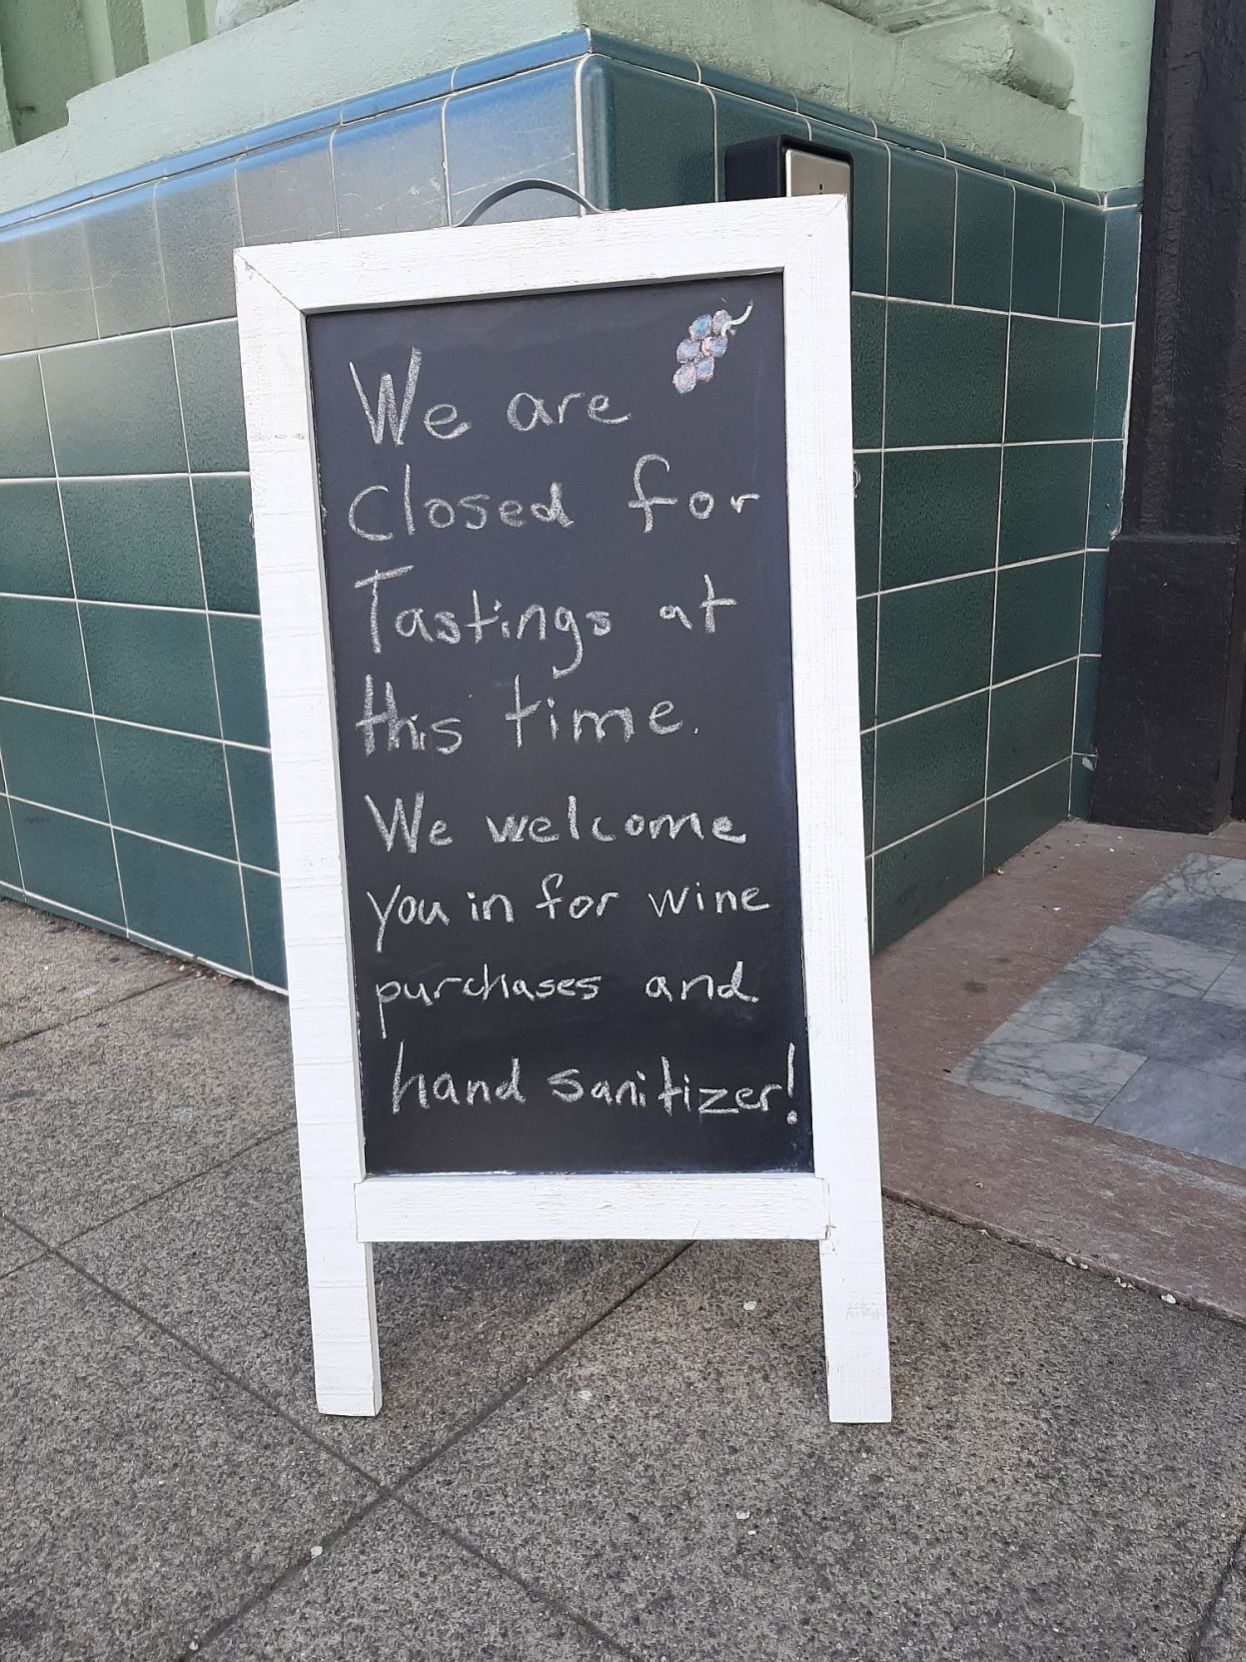 We are
Closed for
Tastings at
this time.
We welcome
you in for wine
purchases and
hand sanitizer!